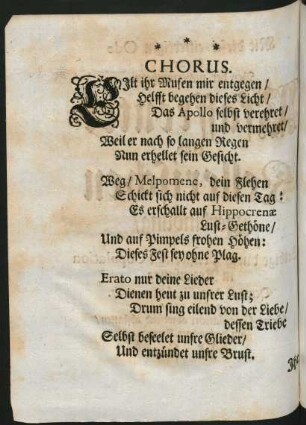 * * *
CHORUS.
EIlt ihr Musen mir entgegen /
Helfft begehen dieses Licht /
Das Apollo selbst verehret /
und vermehret /
Weil er nach so langen Regen
Nun erhellet sein Gesicht.
Weg / Melpomene, dein Flehen
Schickt sich nicht auf diesen Tag:
Es erschallt auf Hippocrenæ
Lust-Gethöne /
Und auf Pimpels frohen Höhen:
Dieses Fest sey ohne Plag.
Erato nur deine Lieder
Dienen heut zu unsrer Lust;
Drum sing eilend von der Liebe /
dessen Triebe
Selbst beseelet unsre Glieder /
Und entzündet unsre Brust.